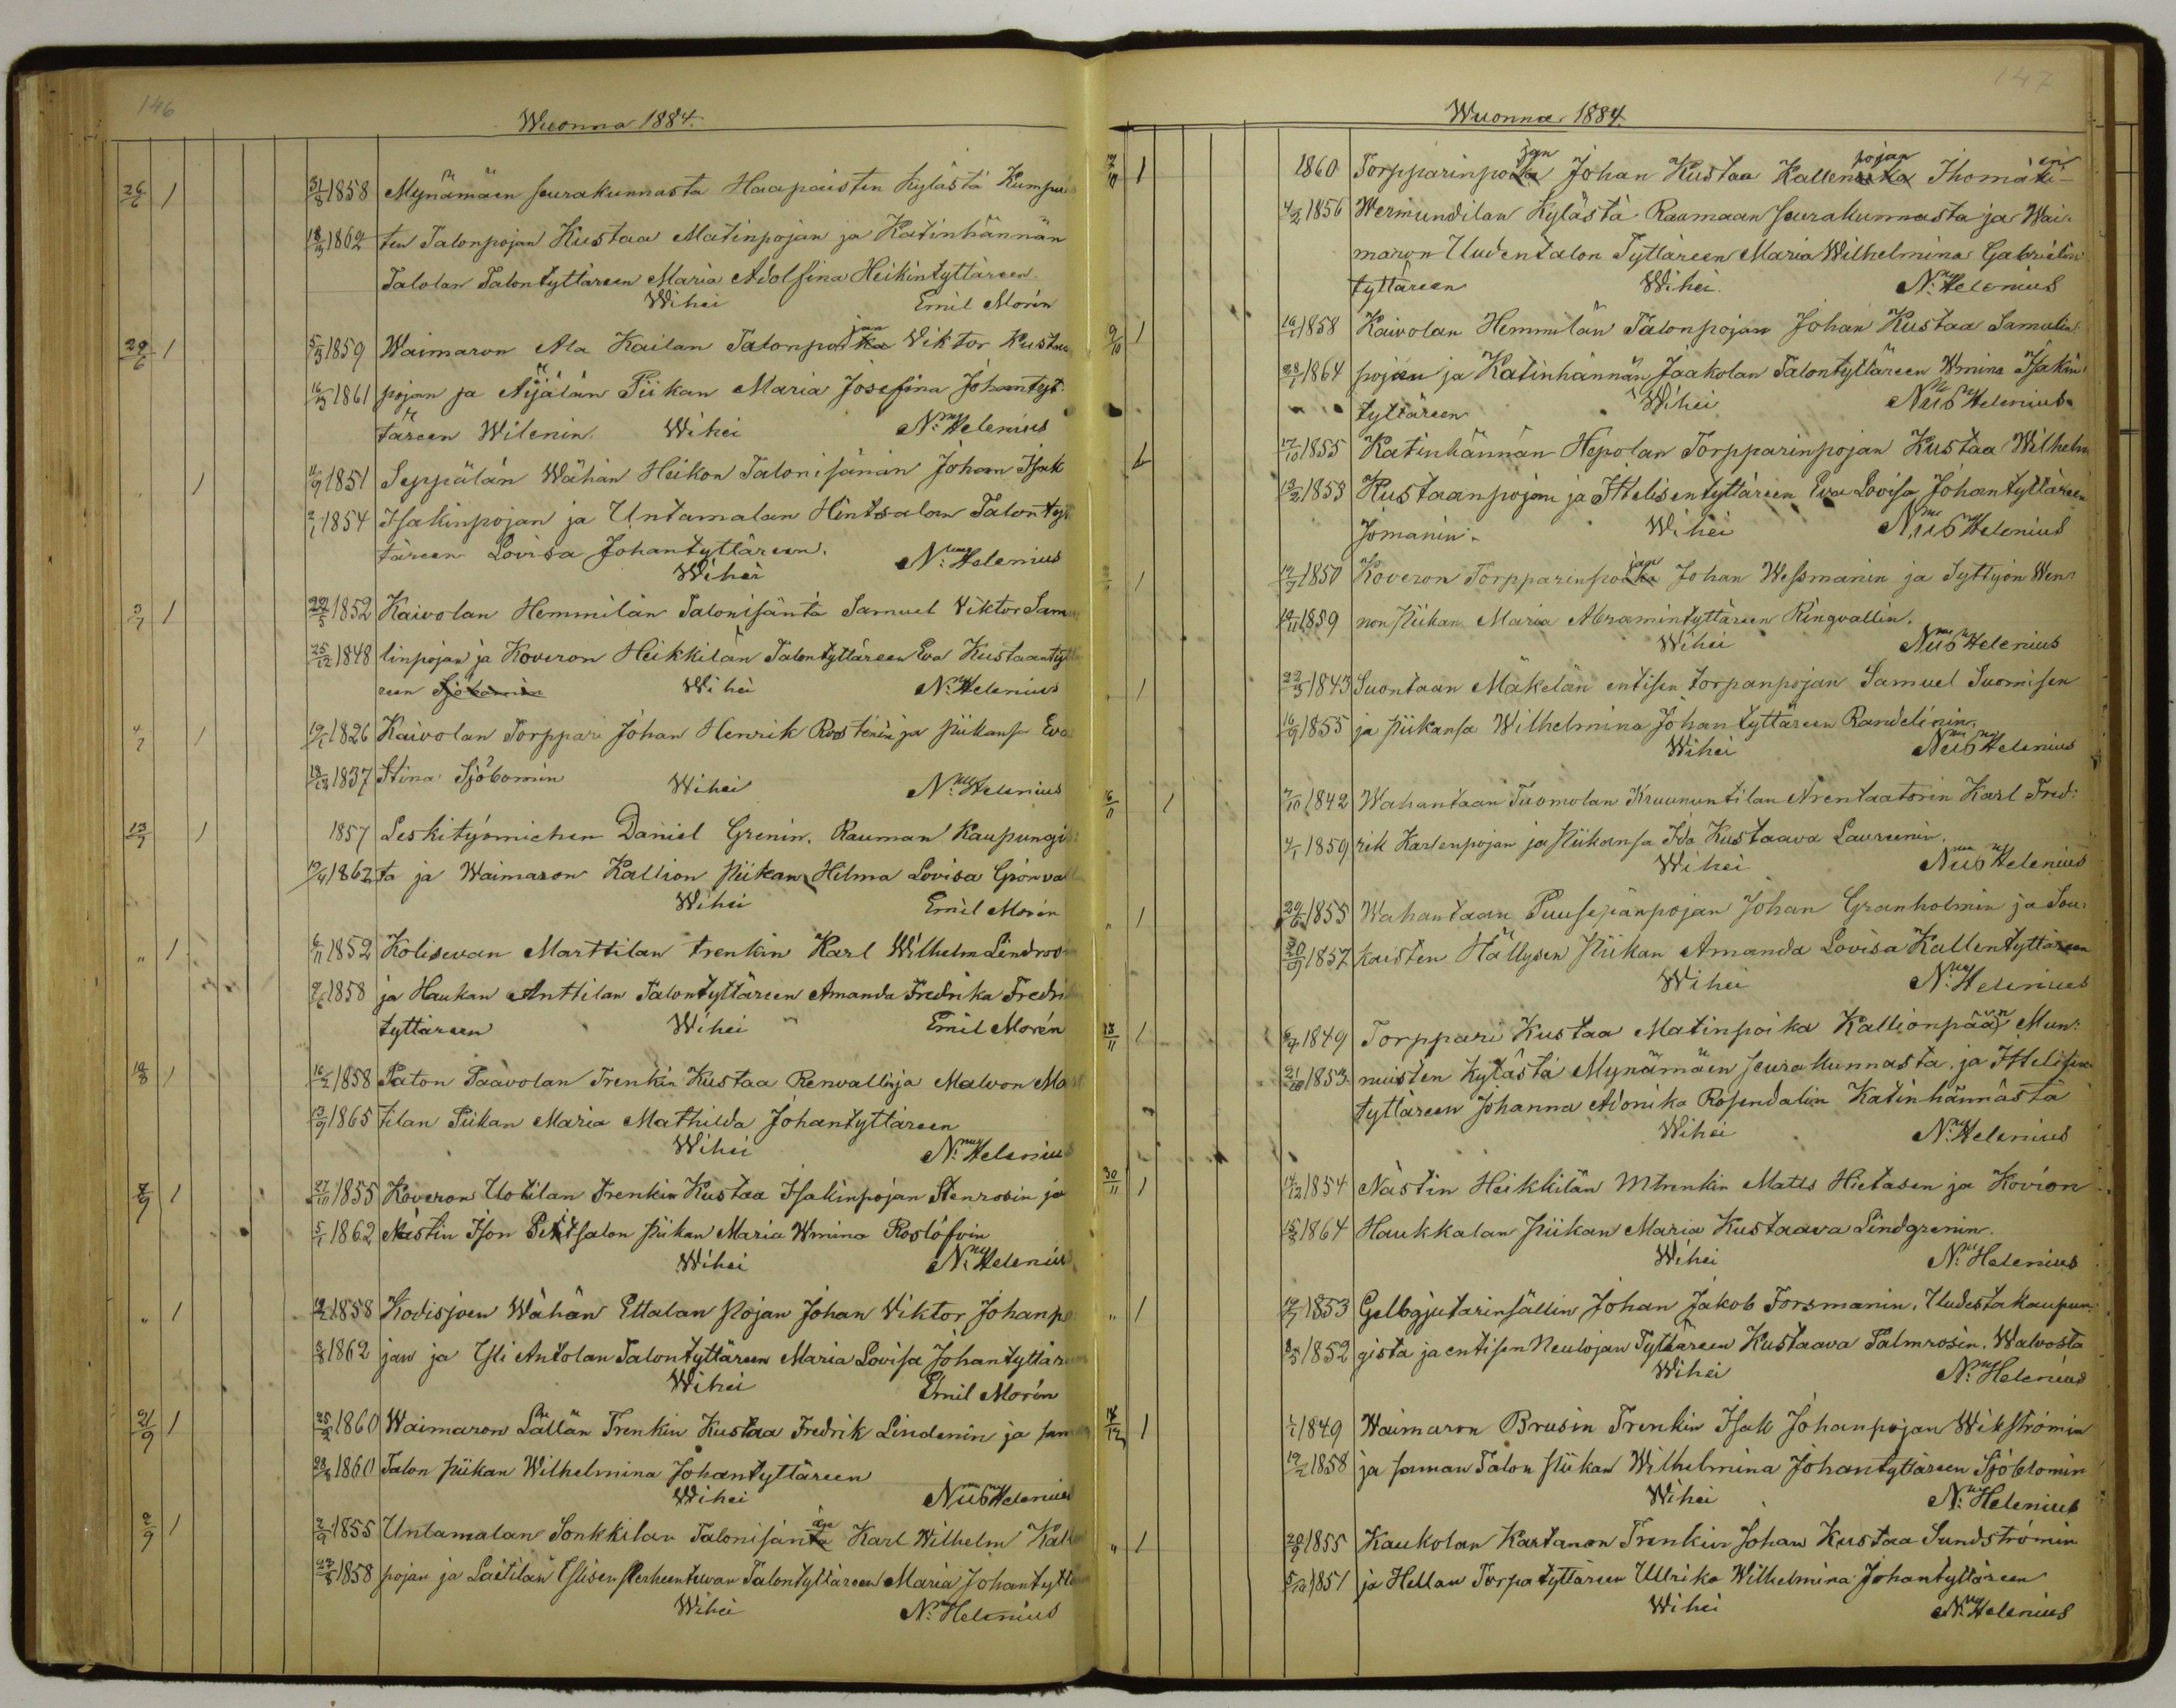 146
Wuonna 1884.
26/6 1 31/8 1858 Mynämäen seurakunnasta Haapaisten kylästä
18/3 1862 ten Talonpojan Kustaa Matinpojan ja Katinhännän
Talolan Talontyttäreen Maria Adolfina Heikintyttäreen
Wihei Emil Morén
29/6 1 5/3 1859 Waimaron Ala Kailan Talonpojan Viktor Kustaa
16/3 1861 pojan ja Äijälän Piikan Maria Josefina Johantyt
täreen Wilenin. Wihei N:nus Helenius
1 11/9 1851 Seppälän Wähän Heikon Talonisänän Johan Isak
2/1 1854 Isakinpojan ja Untamalan Hintsalan Talontyt
täreen Lovisa Johantyttäreen.
Wihei N:nus Helenius
3/7 1 29/5 1852 Kaivolan Hemmilän Talonisäntä Samuel Viktor Sam
25/12 1848 linpojan ja Koveron Heikkilän Talontyttäreen Eva Kustaantyttä
reen Wihei N:nus Helenius
4/7 1 19/1 1826 Kaivolan Torppari Johan Henrik Rosténin ja piikansa Eva
18/12 1837 Stina Sjöbomin Wihei N:nus Helenius
13/7 1 1857 Leskityömiehen Daniel Grenin, Rauman Kaupungis
19/4 1862 ta ja Waimaron Kallion piikan Hilma Lovisa Grönvall
Wihei Emil Morén
" 1 6/11 1852 Kolisevan Marttilan trenkin Karl Wilhelm Lindroos
9/6 1858 ja Haukan Anttilan Talontyttäreen Amanda Fredrika Fredri
tyttäreen Wihei Emil Morén
10/8 1 16/2 1858 Paton Paavolan Trenkin Kustaa Renvallin ja Malvon Ma
13/9 1865 tilan Piikan Maria Mathilda Johantyttäreen
Wihei N:nus Helenius
7/9 1 27/10 1855 Koveron Uotilan trenkin Kustaa Isakinpojan Stenrosin ja
5/1 1862 Nästin Ison salon piikan Maria Wmina Roslöfvin
Wihei N:nus Helenius
" 1 12/2 1858 Kodisjoen Wähän Ettalan Pojan Johan Viktor Johanpo
3/8 1862 jan ja Yli Antolan Talontyttäreen Maria Lovisa Johantyttäreen
Wihei Emil Morén
21/9 1 25/2 1860 Waimaron Lällän Trenkin Kustaa Fredrik Lindenin ja saman
28/3 1860 Talon piikan Wilhelmina Johantyttäreen
Wihei Nils Helenius
2/9 1 2/9 1855 Untamalan Sonkkilan Talonisänän Karl Wilhelm Kal
22/8 1858 pojan ja Laitilan Talontyttäreen Maria Johantyttä
Wihei N:nus Helenius
147
Wuonna 1884.
7/10 1 1860 Torpparinpojan Johan Kustaa Kallenpojan Thomäen
4/2 1856 Wermundilan Kylästä Raumaan seurakunnasta ja Wai-
maron Uudentalon Tyttäreen Maria Wilhelmina Gabrielin
tyttäreen Wihei. N:nus Helenius
9/10 1 16/1 1858 Kaivolan Hemmilän Talonpojan Johan Kustaa Samulin
28/1 1864 pojan ja Katinhännän Jaakolan Talontyttäreen Wmina Isakin
tyttäreen Wihei Nils Helenius
17/10 1855 Katinhännän Hepolan Torpparinpojan Kustaa Wilhelm
13/2 1853 Kustaanpojan ja Ittelisentyttäreen Eva Lovisa Johantyttäreen
Jomanin. Wihei Nils Helenius
1 12/7 1850 Koveron Torpparinpojan Johan Wessmanin ja Syttyön Wen-
19/11 1859 non piikan Maria Abramintyttäreen Ringvallin.
Wihei Nils Helenius
1 22/3 1843 Suontaan Mäkelän entisen torpanpojan Samuel Suomisen
16/9 1855 ja piikansa Wilhelmina Johantyttäreen Randelinin.
Wihei Nils Helenius
6/11 1 7/10 1842 Wahantaan Tuomolan Kruununtilan Arentaatorin Karl Fred-
4/1 1859 rik Karlenpojan ja piikansa Ida Kustaava Laureenin.
Wihei Nils Helenius
" 1 29/6 1855 Wahantaan Puusepänpojan Johan Granholmin ja Sou-
20/9 1857 kaisten Hällysen Piikan Amanda Lovisa Kallentyttäreen
Wihei N:nus Helenius
13/11 1 6/4 1849 Torppari Kustaa Matinpoika Kallionpään Mun-
21/10 1853 nuisten Kylästä Mynämäen seurakunnasta, ja Ittelisen
tyttäreen Johanna Adonika Rosendalin Katinhännästä
Wihei N:nus Helenius
30/11 1 17/12 1854 Nästin Heikkilän Mtrenkin Matts Hietasen ja Kovion
15/8 1864 Haukkalan piikan Maria Kustaava Lindgrenin.
Wihei N:nus Helenius
" 1 19/7 1853 Gelbgjutarinsällin Johan Jakob Forsmanin, Uudestakaupun-
8/5 1852 gista ja entisen Neulojan Tyttäreen Kustaava Palmrosin, Walvosta
Wihei N:nus Helenius
14/12 1 1/1 1849 Waimaron Brusin Trenkin Isak Johanpojan Wikströmin
19/2 1858 ja saman Talon Piikan Wilhelmina Johantyttäreen Sjöblomin
Wihei N:nus Helenius
" 1 20/9 1855 Kaukolan Kartanon Trenkin Johan Kustaa Sundströmin
5/12 1851 ja Hellan Torpatyttäreen Ullrika Wilhelmina Johantyttäreen
Wihei N:nus Helenius